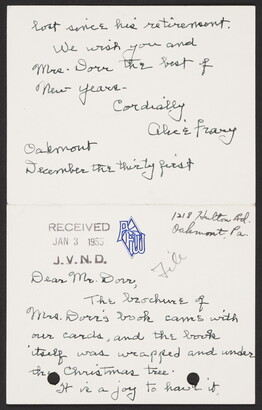 lost since his retirement.
We wish you and
Mrs. Dorr the best of
New Years-
Cordially
Alice Frary
Oakmont
December the thirty first
1218 Hulton Rd.
Oakmont Pa.
RECEIVED
JAN 3 1955
J.V.N.D.
File
Dear Mr. Dorr,
The brochure of
Mrs. Dorr's book came with
our cards, and the book
itself was wrapped and under
the Christmas tree.
It is a joy to have it,